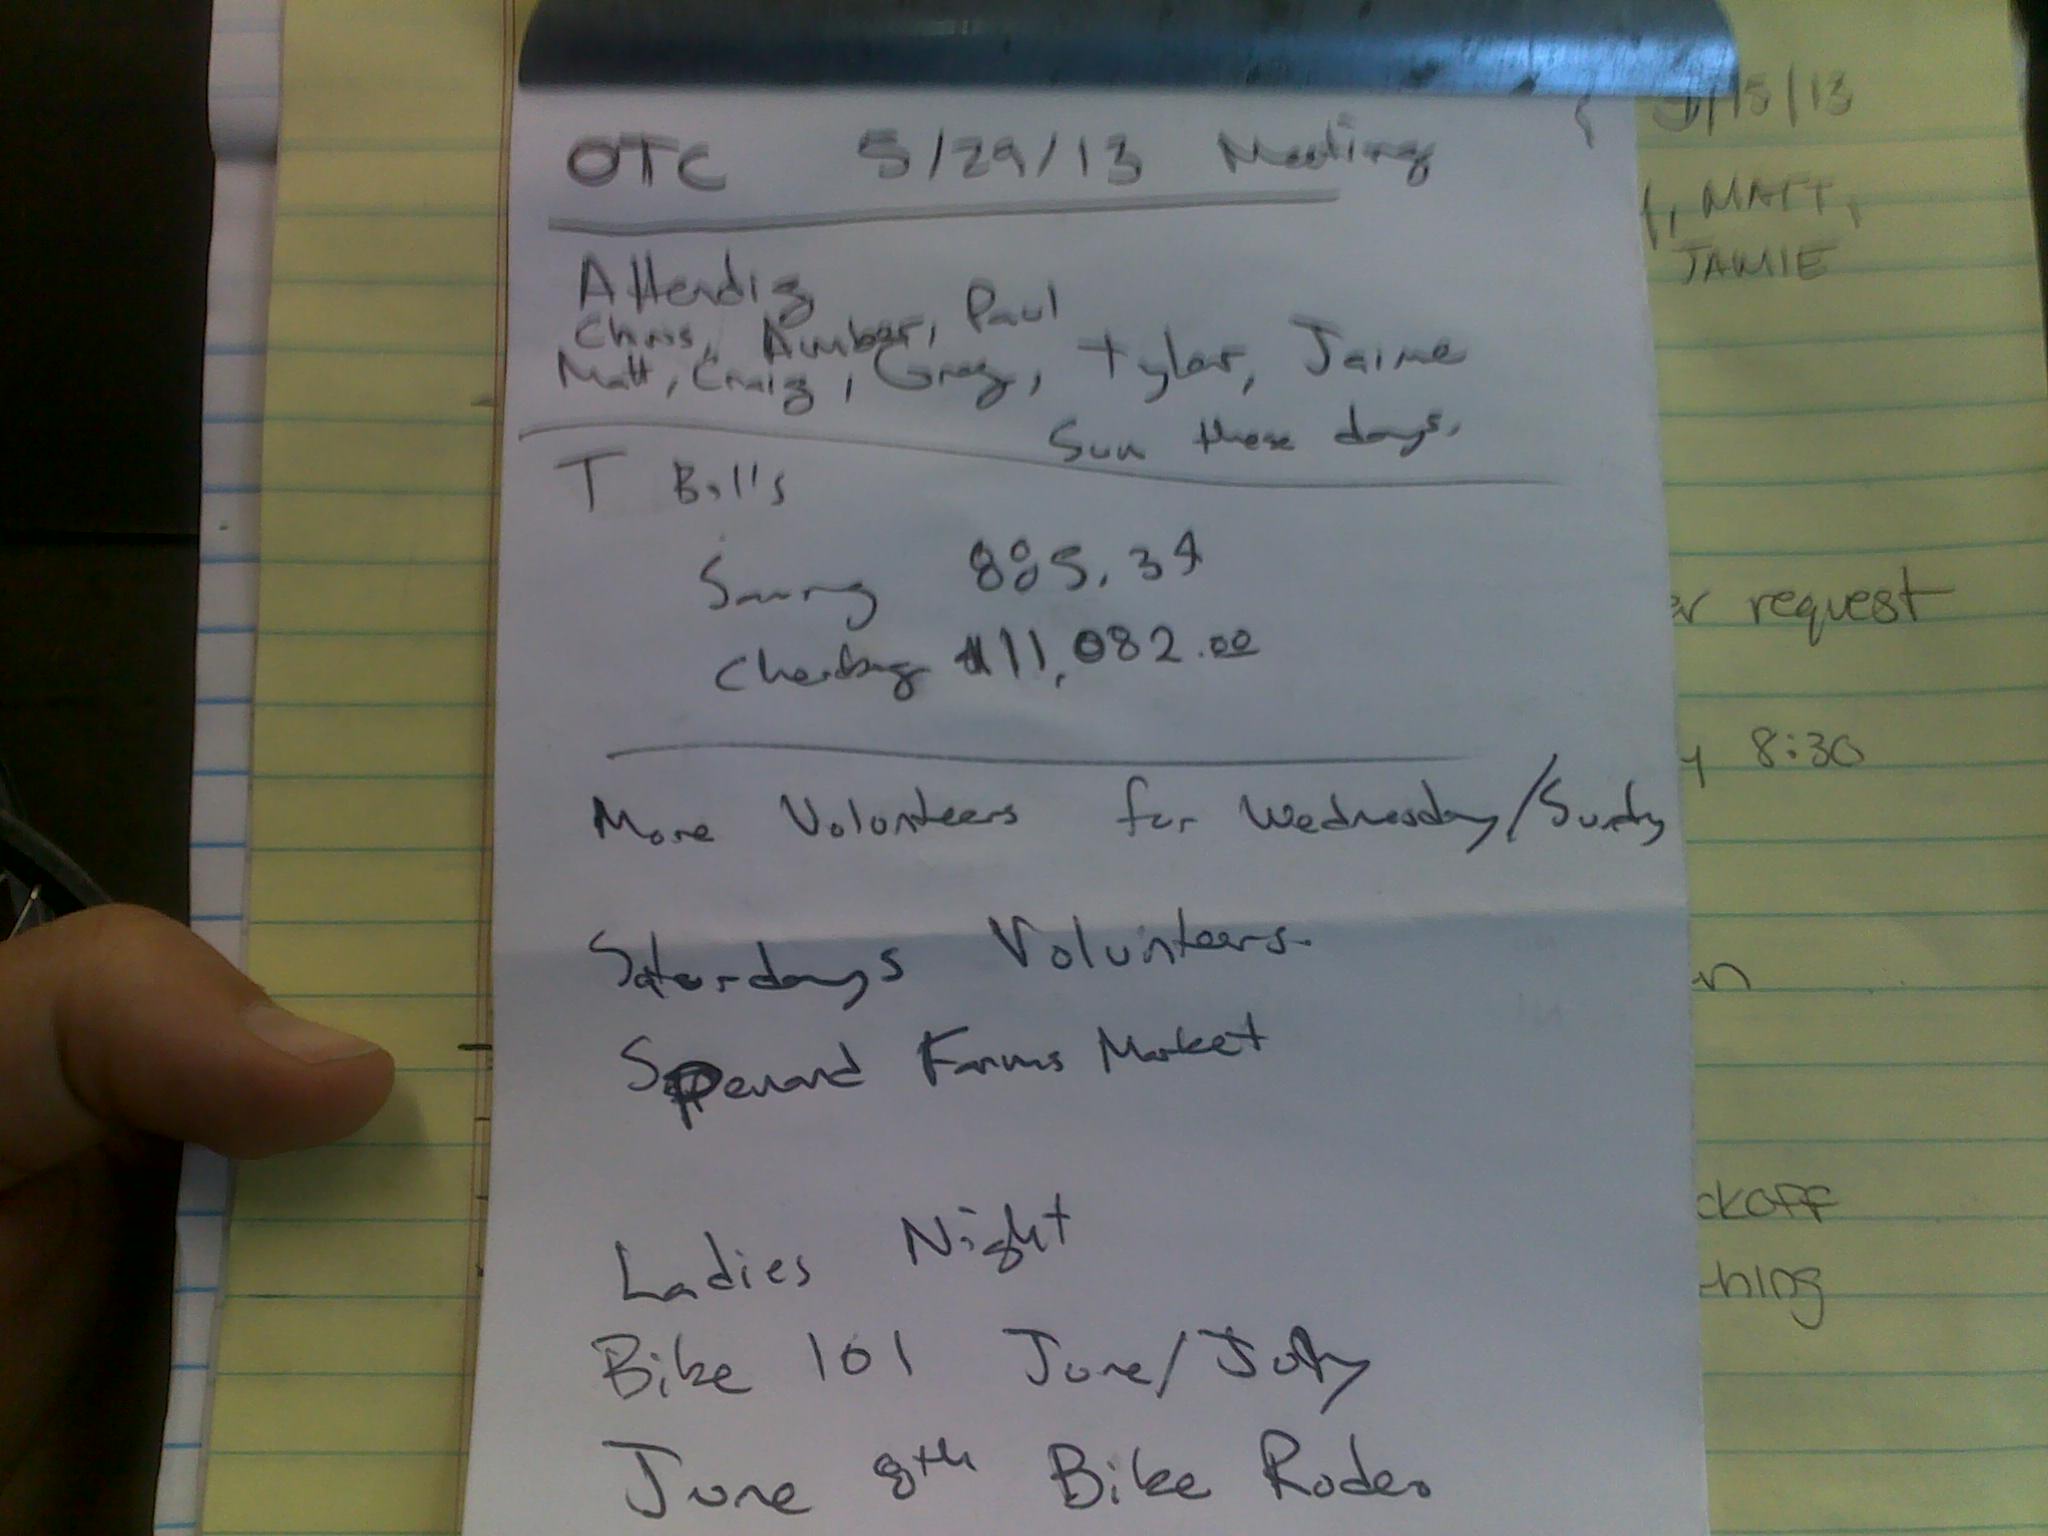 OTC 5/29/13 Meeting
Attendig
Chris, Amber, Paul
Matt, Craig, Greg, Tyler, Jaime
Sun these days.
T Bill's
Saving 885.34
Checking $11,082.00
More Volunteers for Wednesday/Sunday
Saturdays Volunteers.
Spenard Farms Market
Ladies Night
Bike 101 June/July
June 8th Bike Rodeo
5/15/13
, MATT,
JAMIE
er request
y 8:30
n
ckoff
hing